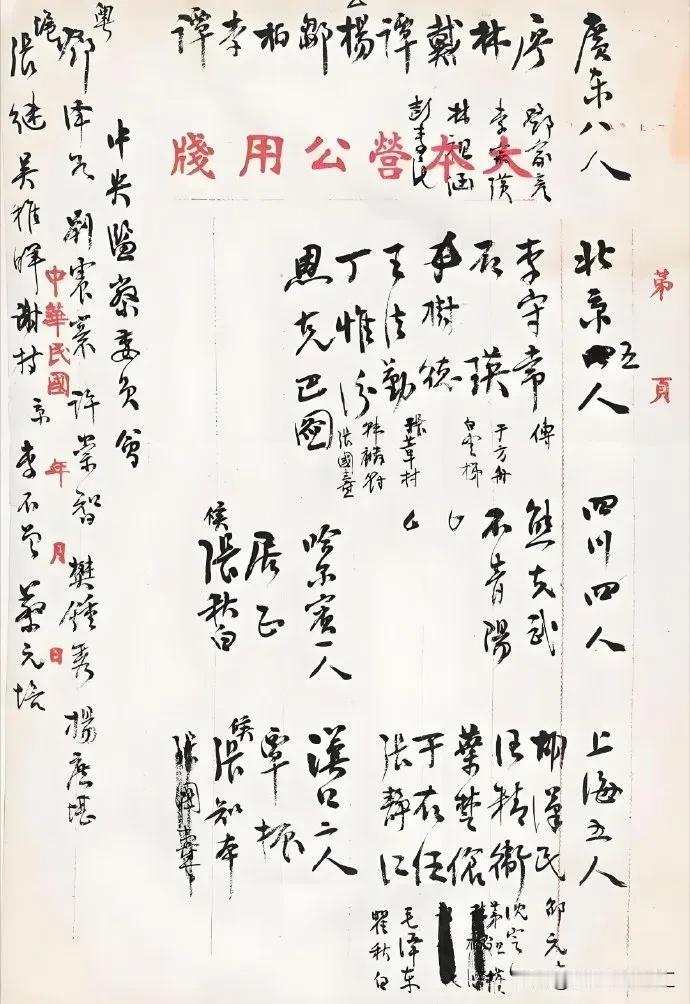 廣東八人
廖
林
戴
譚
楊
鄒
柏
李
譚
鄧家彥
李宗黃
林祖涵
彭素民
大本營公用牋
第 頁
北京五人
李守常
石瑛
于樹德
王法勤
丁惟汾
恩克巴圖
傅
于方舟
白雲梯
張葦村
韓麟符
張國燾
四川四人
熊克武
石青陽
哈尔賓一人
居正
候 張秋白
上海五人
胡漢民
汪精衛
葉楚傖
于右任
張靜江
邵元
沈定
茅祖權
毛泽东
瞿秋白
漢口二人
覃振
候 張知本
張國燾
中央監察委員會
粵 鄧泽如 劉震寰 許崇智 樊鍾秀 楊庶堪
中華民國 年 月 日
滬 張继 吴稚晖 謝持 京 李石曾 蔡元培